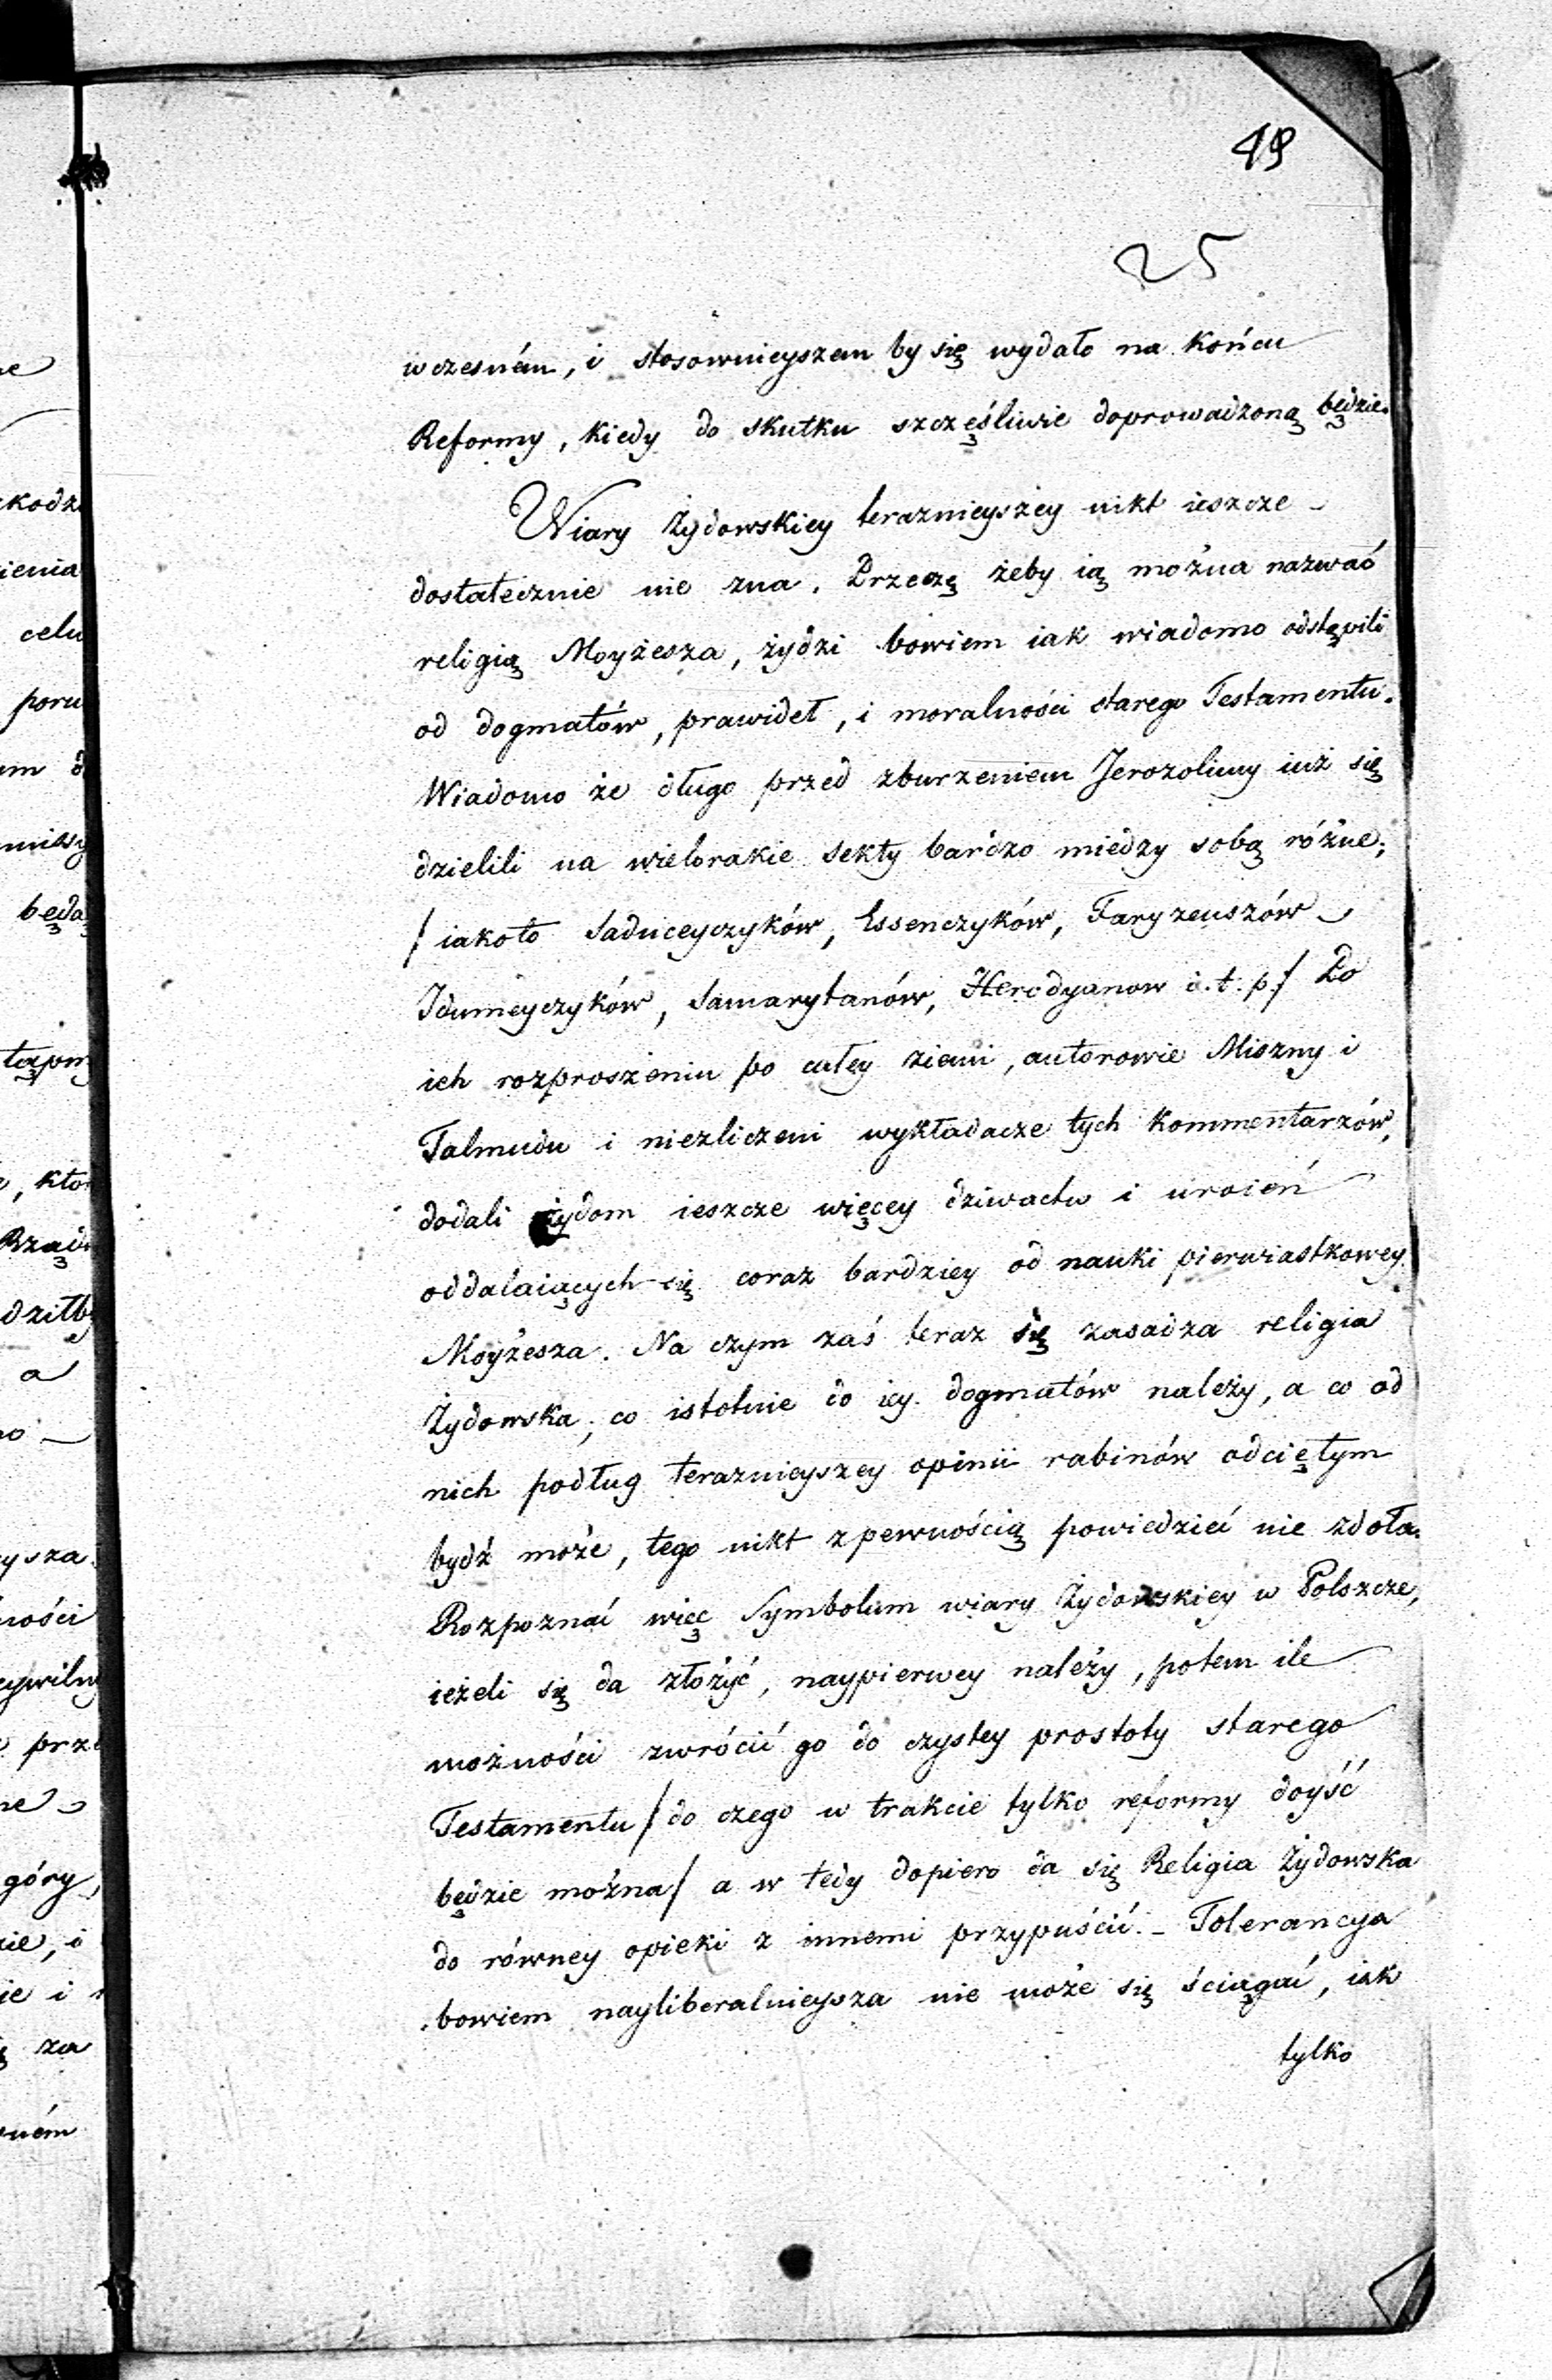 49
25
wczesném, i stosownieyszem by się wydało na końcu
Reformy, kiedy do skutku szczęśliwie doprowadzoną będzie.
Wiary Żydowskiey teraznieyszey nikt ieszcze
dostatecznie nie zna. Przeczę żeby ią można nazwać
religią Moyżesza, żydzi bowiem iak wiadomo odstąpili
od dogmatów, prawideł, i moralności starego Testamentu.
Wiadomo że długo przed zburzeniem Jerozolimy iuż się
dzielili na wielorakie sekty bardzo miedzy sobą różne;
/ iakoto Saduceyczyków, Essenczyków, Faryzeuszów
Idumeyczyków, Samarytanów, Herodyanow i.t.p./ Po
ich rozproszeniu po całey ziemi, autorowie Miszny i
Talmudu i niezliczeni wykładacze tych kommentarzów,
dodali żydom ieszcze więcey dziwactw i uroień
oddalaiących się coraz bardziey od nauki pierwiastkowey
Moyżesza. Na czym zaś teraz się zasadza religia
Żydowska, co istotnie do iey dogmatów należy, a co od
nich podług teraznieyszey opinii rabinów odciętym
bydź może, tego nikt z pewnością powiedzieć nie zdoła.
Rozpoznać więc Symbolum wiary Żydowskiey w Polszcze,
ieżeli się da złożyć, naypierwey należy, potem ile
możności zwrócić go do czystey prostoty starego
Testamentu / do czego w trakcie tylko reformy doyść
będzie można / a w tedy dopiero da się Religia Żydowska
do równey opieki z innemi przypuścić. – Tolerancya
bowiem nayliberalnieysza nie może się ściągać, iak
tylko